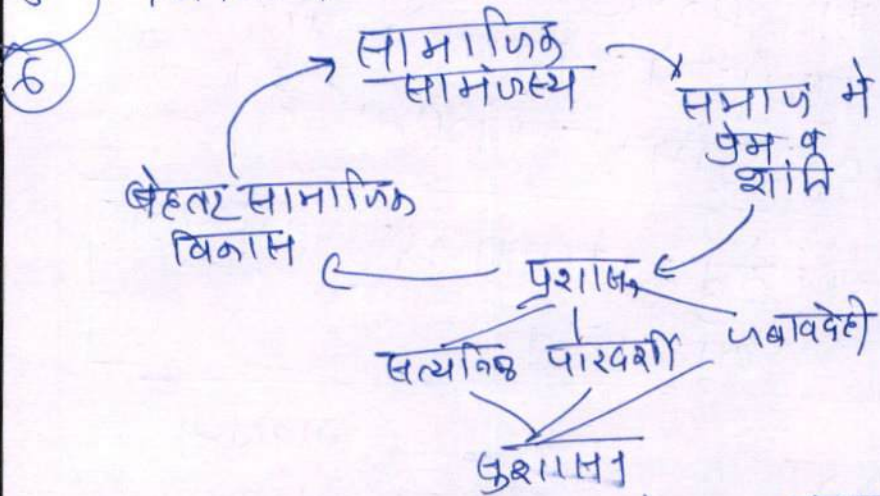 6
सामाजिक
सामंजस्य
समाज मे
प्रेम व
शांति
बेहतर सामाजिक
विकास
प्रशासन
सत्यनिष्ठ पारदर्शी जबावदेही
सुशासन